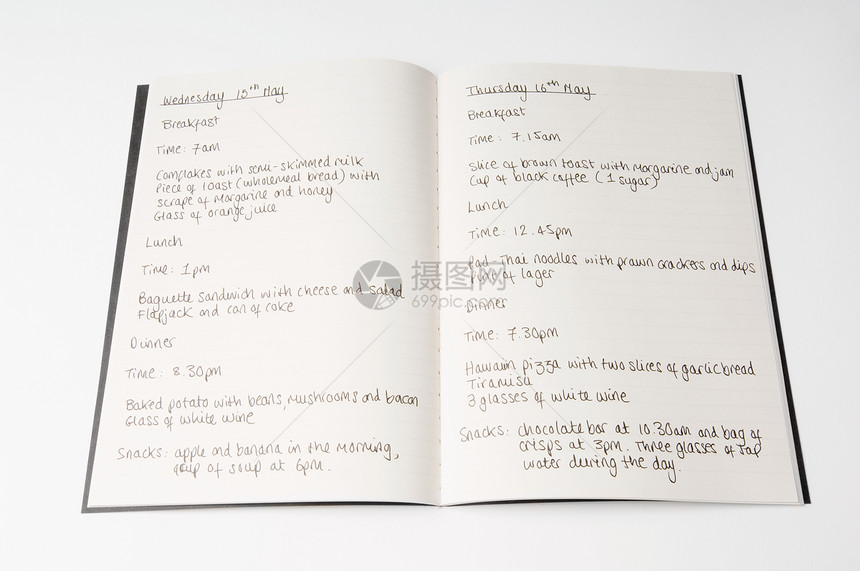 Wednesday 15th May
Breakfast
Time: 7am
Cornflakes with semi-skimmed milk
Piece of toast (wholemeal bread) with
scrape of Margarine and honey
Glass of orange juice
Lunch
Time: 1pm
Baguette sandwich with cheese and salad
Flapjack and can of coke
Dinner
Time: 8.30pm
Baked potato with beans, mushrooms and bacon
Glass of white wine
Snacks: apple and banana in the morning,
cup of soup at 6pm.
Thursday 16th May
Breakfast
Time: 7.15am
Slice of brown toast with margarine and jam
Cup of black coffee (1 sugar)
Lunch
Time: 12.45pm
Pad Thai noodles with prawn crackers and dips
Pint of lager
Dinner
Time: 7.30pm
Hawaiin pizza with two slices of garlic bread
Tiramisu
3 glasses of white wine
Snacks: chocolate bar at 10.30am and bag of
crisps at 3pm. Three glasses of tap
water during the day.
摄图网
699pic.com